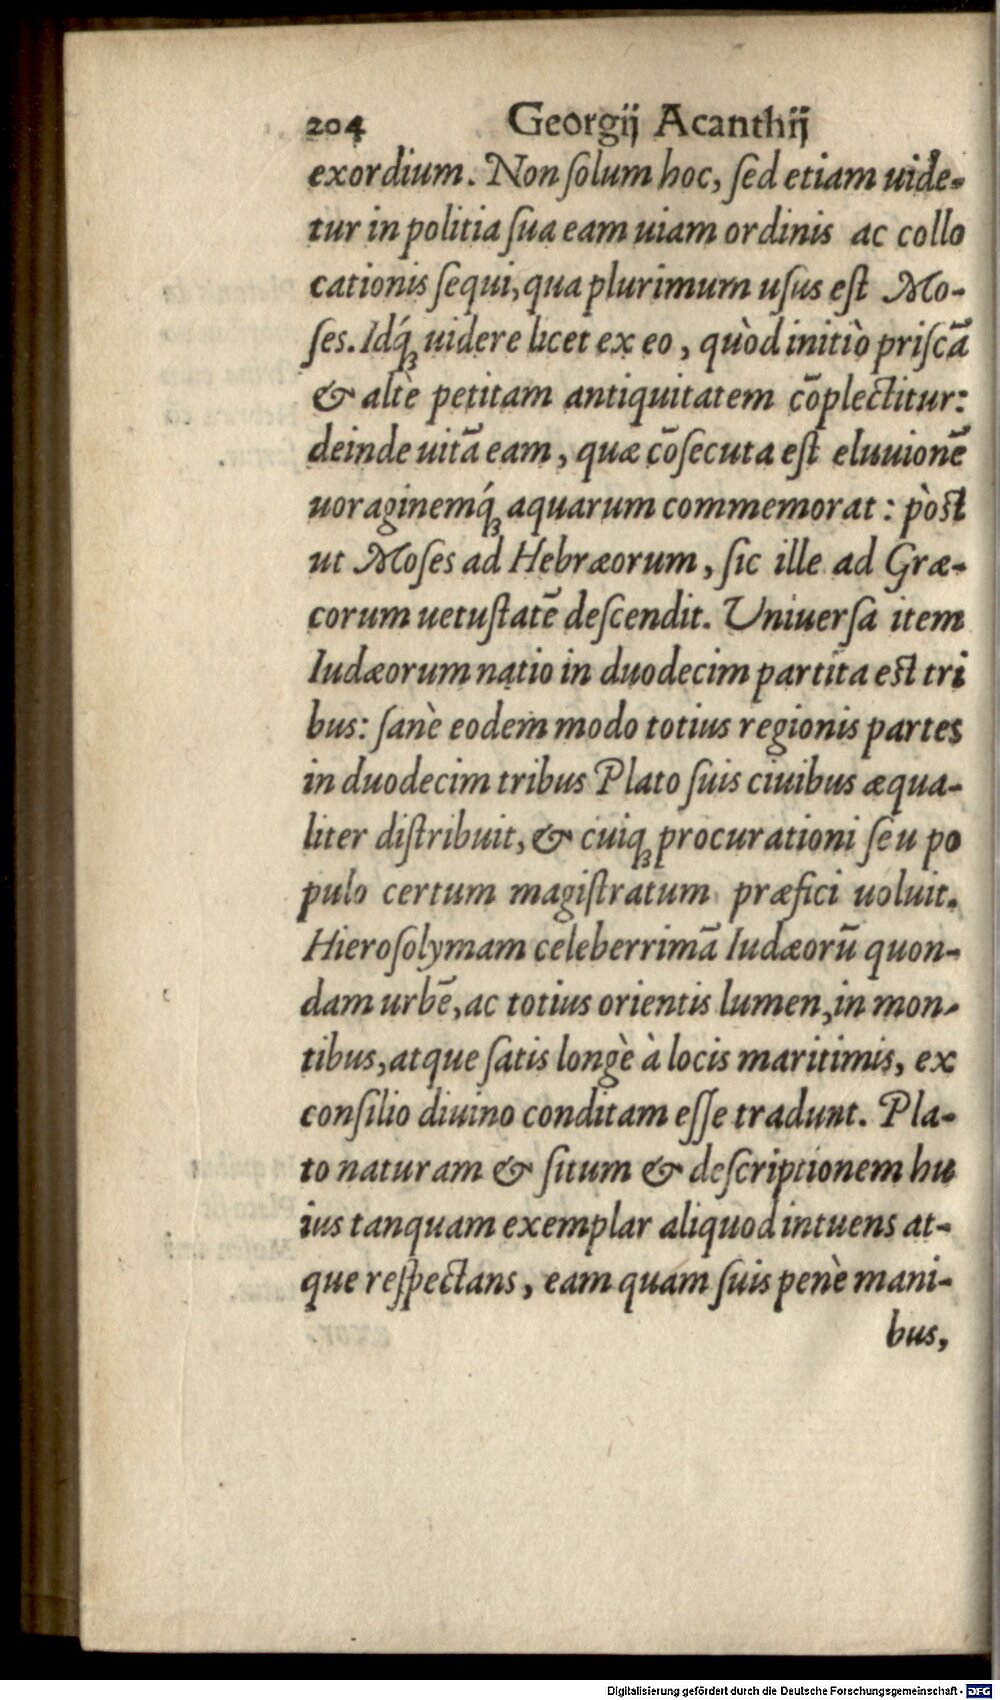 204 Georgij Acanthij
exordium. Non ſolum hoc, ſed etiam uide-
tur in politia ſua eam uiam ordinis ac collo
cationis ſequi, qua plurimum uſus eſt Mo-
ſes. Idq́ꝫ uidere licet ex eo, quòd initiò priſcā
& altè petitam antiquitatem cōplectitur:
deinde uitā eam, quæ cōſecuta eſt eluuionē
uoraginemq́ꝫ aquarum commemorat: pòſt
ut Moſes ad Hebræorum, ſic ille ad Græ-
corum uetuſtatē deſcendit. Uniuerſa item
Iudæorum natio in duodecim partita eſt tri
bus: ſanè eodem modo totius regionis partes
in duodecim tribus Plato ſuis ciuibus æqua-
liter diſtribuit, & cuiqꝫ procurationi ſeu po
pulo certum magiſtratum præfici uoluit.
Hieroſolymam celeberrimā Iudæorū quon-
dam urbē, ac totius orientis lumen, in mon-
tibus, atque ſatis longè à locis maritimis, ex
conſilio diuino conditam eſſe tradunt. Pla-
to naturam & ſitum & deſcriptionem hu
ius tanquam exemplar aliquod intuens at-
que reſpectans, eam quam ſuis penè mani-
bus,
Digitalisierung gefördert durch die Deutsche Forschungsgemeinschaft - DFG